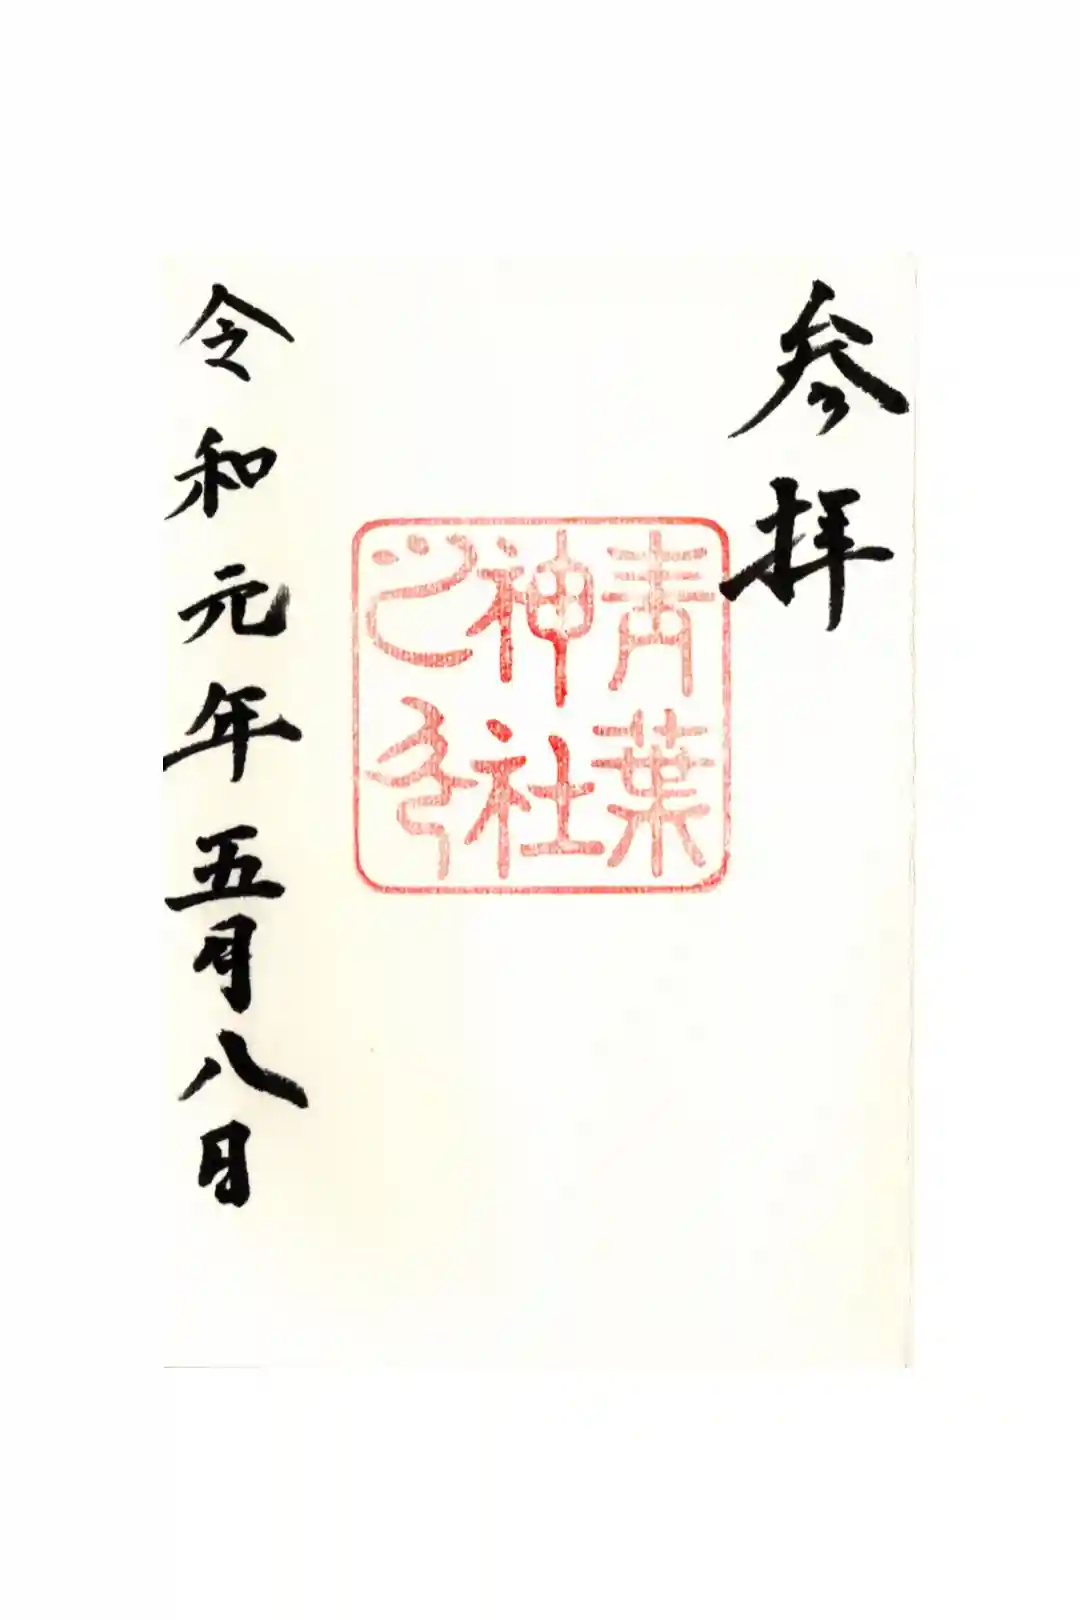 参拝
青葉
神社
之印
令和元年五月八日